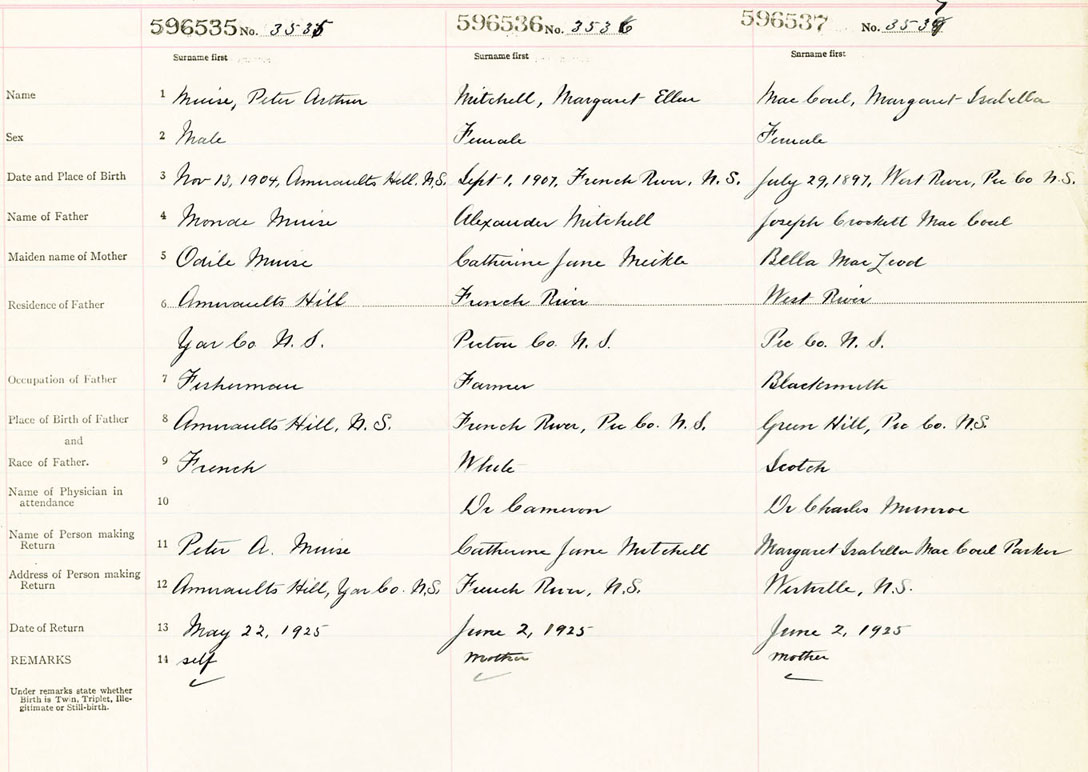 596535 No. 3535 596536 No. 3536 596537 No. 3537
Surname first Surname first Surname first
Name 1 Muise, Peter Arthur Mitchell, Margaret Ellen Mac Coul, Margaret Isabella
Sex 2 Male Female Female
Date and Place of Birth 3 Nov 13, 1904, Amiraults Hill, N.S. Sept 1, 1907, French River, N.S. July 29, 1897, West River, Pic Co N.S.
Name of Father 4 Monde Muise Alexander Mitchell Joseph Crockett Mac Coul
Maiden name of Mother 5 Odile Muise Catherine Jane Meikle Bella MacLeod
Residence of Father 6 Amiraults Hill French River West River
Yar Co N. S. Pictou Co. N. S. Pic Co. N. S.
Occupation of Father 7 Fisherman Farmer Blacksmith
Place of Birth of Father 8 Amiraults Hill, N. S. French River, Pic Co. N. S. Green Hill, Pic Co. N.S.
and
Race of Father. 9 French White Scotch
Name of Physician in
attendance 10 Dr Cameron Dr Charles Munroe
Name of Person making
Return 11 Peter A. Muise Catherine Jane Mitchell Margaret Isabella Mac Coul Parker
Address of Person making
Return 12 Amiraults Hill, Yar Co. N.S. French River, N.S. Westville, N.S.
Date of Return 13 May 22, 1925 June 2, 1925 June 2, 1925
REMARKS 14 self mother mother
Under remarks state whether
Birth is Twin, Triplet, Ille-
gitimate or Still-birth.